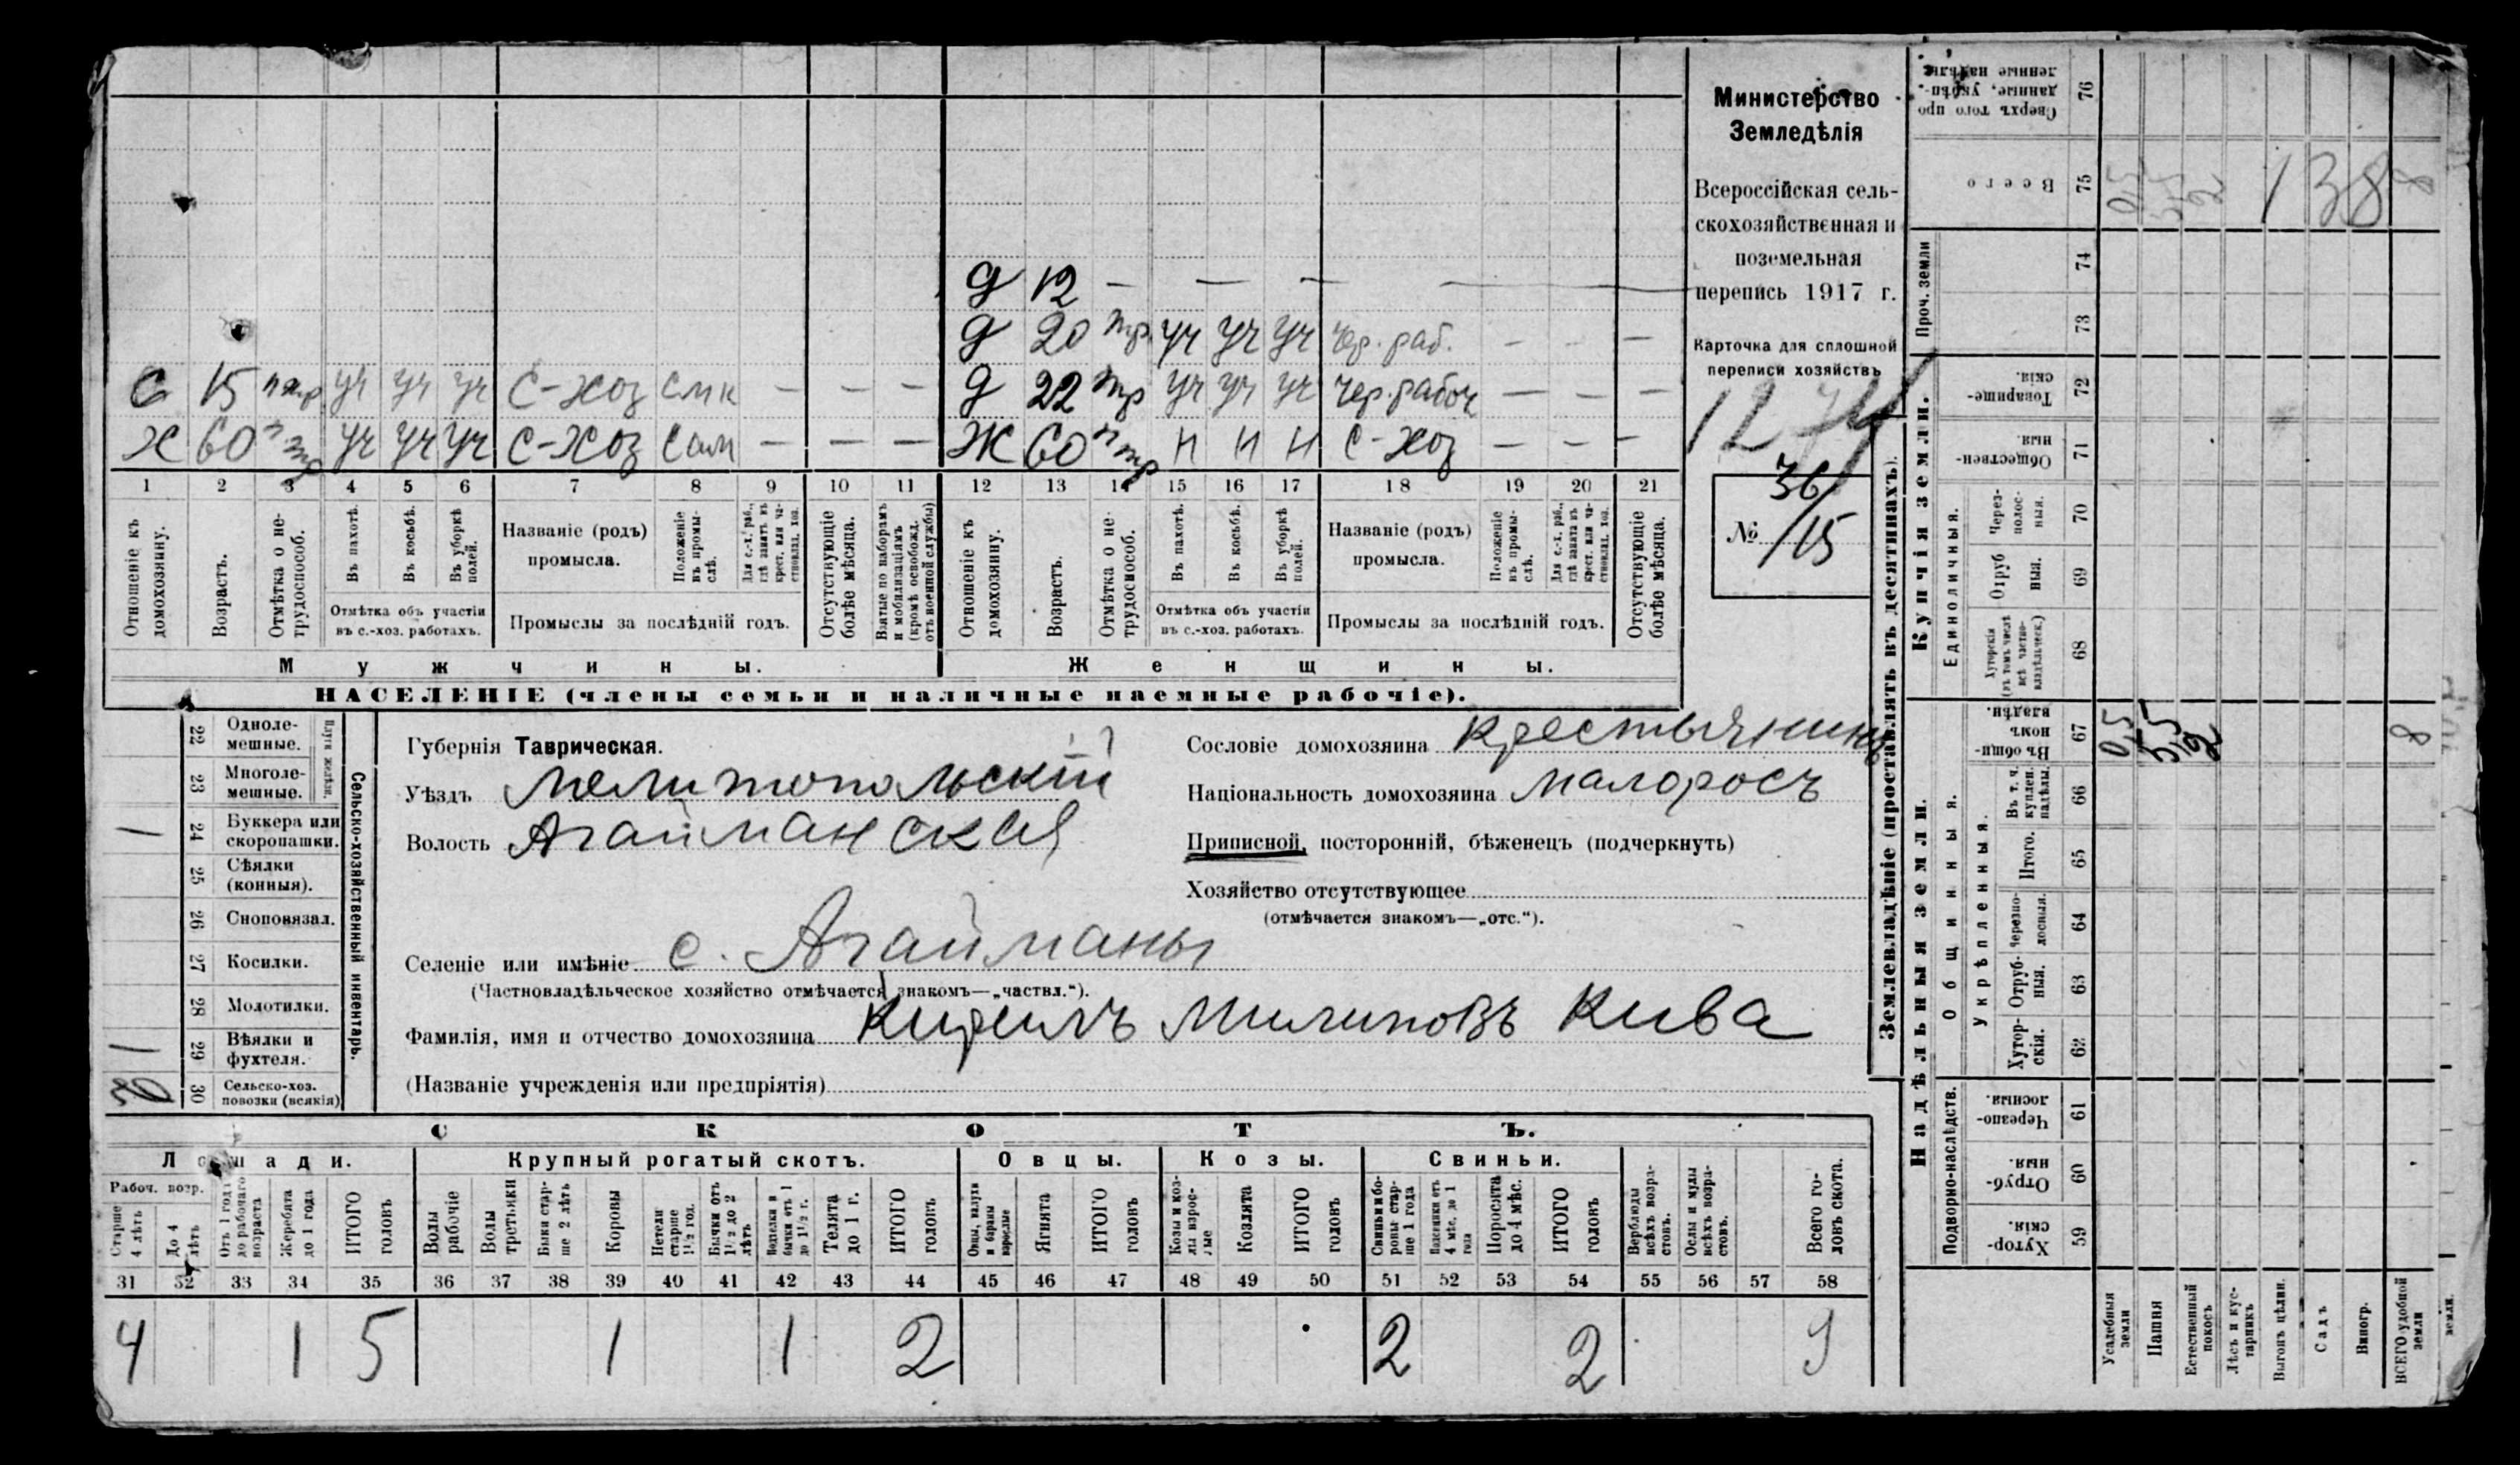 Министерство
Земледѣлія
Всероссійская сель-
скохозяйственная и
поземельная
перепись 1917 г.
Карточка для сплошной
переписи хозяйствъ
36/
№ /15
д 12 — — —
д 20 тр. уч уч уч чер. раб. — — —
с 15 птр уч уч уч С-Хоз смк — — —
д 22 тр уч уч уч чер. рабоч — — —
х 60 птр уч уч уч С-Хоз Сам — — —
Ж 60 птр н н н С-Хоз — — —
1 2 3 4 5 6 7 8 9 10 11 12 13 14 15 16 17 18 19 20 21
Отношеніе къ домохозяину.
Возрастъ.
Отмѣтка о не-трудоспособ.
Въ пахотѣ.
Въ косьбѣ.
Въ уборкѣ полей.
Отмѣтка объ участіи
въ с.-хоз. работахъ.
Названіе (родъ)
промысла.
Положеніе въ промы-слѣ.
Для с.-х. раб., гдѣ занятъ въ крест. или ча-стновлад. хоз.
Промыслы за послѣдній годъ.
Отсутствующіе болѣе мѣсяца.
Взятые по наборамъ и мобилизаціямъ (кромѣ освобожд. отъ военной службы)
Отношеніе къ домохозяину.
Возрастъ.
Отмѣтка о не-трудоспособ.
Въ пахотѣ.
Въ косьбѣ.
Въ уборкѣ полей.
Отмѣтка объ участіи
въ с.-хоз. работахъ.
Названіе (родъ)
промысла.
Положеніе въ промы-слѣ.
Для с.-х. раб., гдѣ занята въ крест. или ча-стновлад. хоз.
Промыслы за послѣдній годъ.
Отсутствующіе болѣе мѣсяца.
Мужчины.
Женщины.
НАСЕЛЕНІЕ (члены семьи и наличные наемные рабочіе).
Сельско-хозяйственный инвентарь.
Плуги желѣзн.
22 Одноле-мешные.
23 Многоле-мешные.
1 24 Буккера или скоропашки.
25 Сѣялки (конныя).
26 Сноповязал.
27 Косилки.
28 Молотилки.
1 29 Вѣялки и фухтеля.
30 Сельско-хоз. повозки (всякія)
Губернія Таврическая.
Уѣздъ Мелитопольскій
Волость Агайманская
Сословіе домохозяина крестьянинъ
Національность домохозяина малоросъ
Приписной, посторонній, бѣженецъ (подчеркнуть)
Хозяйство отсутствующее
(отмѣчается знакомъ—„отс.“).
Селеніе или имѣніе с. Агайманы
(Частновладѣльческое хозяйство отмѣчается знакомъ—„частвл.“).
Фамилія, имя и отчество домохозяина Кирилъ Милиновъ Кива
(Названіе учрежденія или предпріятія)
СКОТЪ.
Лошади.
Рабоч. возр.
Старше 4 лѣтъ
До 4 лѣтъ
Отъ 1 года до рабочаго возраста
Жеребята до 1 года
ИТОГО головъ
Крупный рогатый скотъ.
Волы рабочіе
Волы третьяки
Быки стар-ше 2 лѣтъ
Коровы
Нетели старше 1½ год.
Бычки отъ 1½ до 2 лѣтъ
Телки и бычки отъ 1 до 1½ г.
Телята до 1 г.
ИТОГО головъ
Овцы.
Овцы, валухи и бараны взрослые
Ягнята
ИТОГО головъ
Козы.
Козы и коз-лы взрос-лые
Козлята
ИТОГО головъ
Свиньи.
Свиньи и бо-ровы стар-ше 1 года
Подсвинки отъ 4 мѣс. до 1 года
Поросята до 4 мѣс.
ИТОГО головъ
Верблюды всѣхъ возра-стовъ.
Ослы и мулы всѣхъ возра-стовъ.
Всего го-ловъ скота.
31 32 33 34 35 36 37 38 39 40 41 42 43 44 45 46 47 48 49 50 51 52 53 54 55 56 57 58
4 1 5 1 1 2 2 2 9
Землевладѣніе (проставлять въ десятинахъ).
Надѣльныя земли.
Купчія земли.
Проч. земли
Подворно-наслѣдств.
Общинныя.
Укрѣпленныя.
Единоличныя.
Сверхъ того про-данные, укрѣп-ленные надѣлы 76
Всего 75 0,5 5,5 2 138 8
74
73
Товарище-скія. 72
Обществен-ныя. 71
Через-полос-ныя. 70
Отруб-ныя. 69
Хуторскія (въ томъ числѣ всѣ частно-владѣльческ.) 68
Въ общи-номъ владѣн. 67 0,5 5,5 2 8
Въ т. ч. куплен. надѣлы. 66
Итого. 65
Черезпо-лосныя. 64
Отруб-ныя. 63
Хутор-скія. 62
Черезпо-лосныя. 61
Отруб-ныя. 60
Хутор-скія. 59
Усадебныя земли
Пашня
Естественный покосъ
Лѣсъ и кус-тарникъ
Выгонъ цѣлин.
Садъ
Виногр.
ВСЕГО удобной земли
земли.